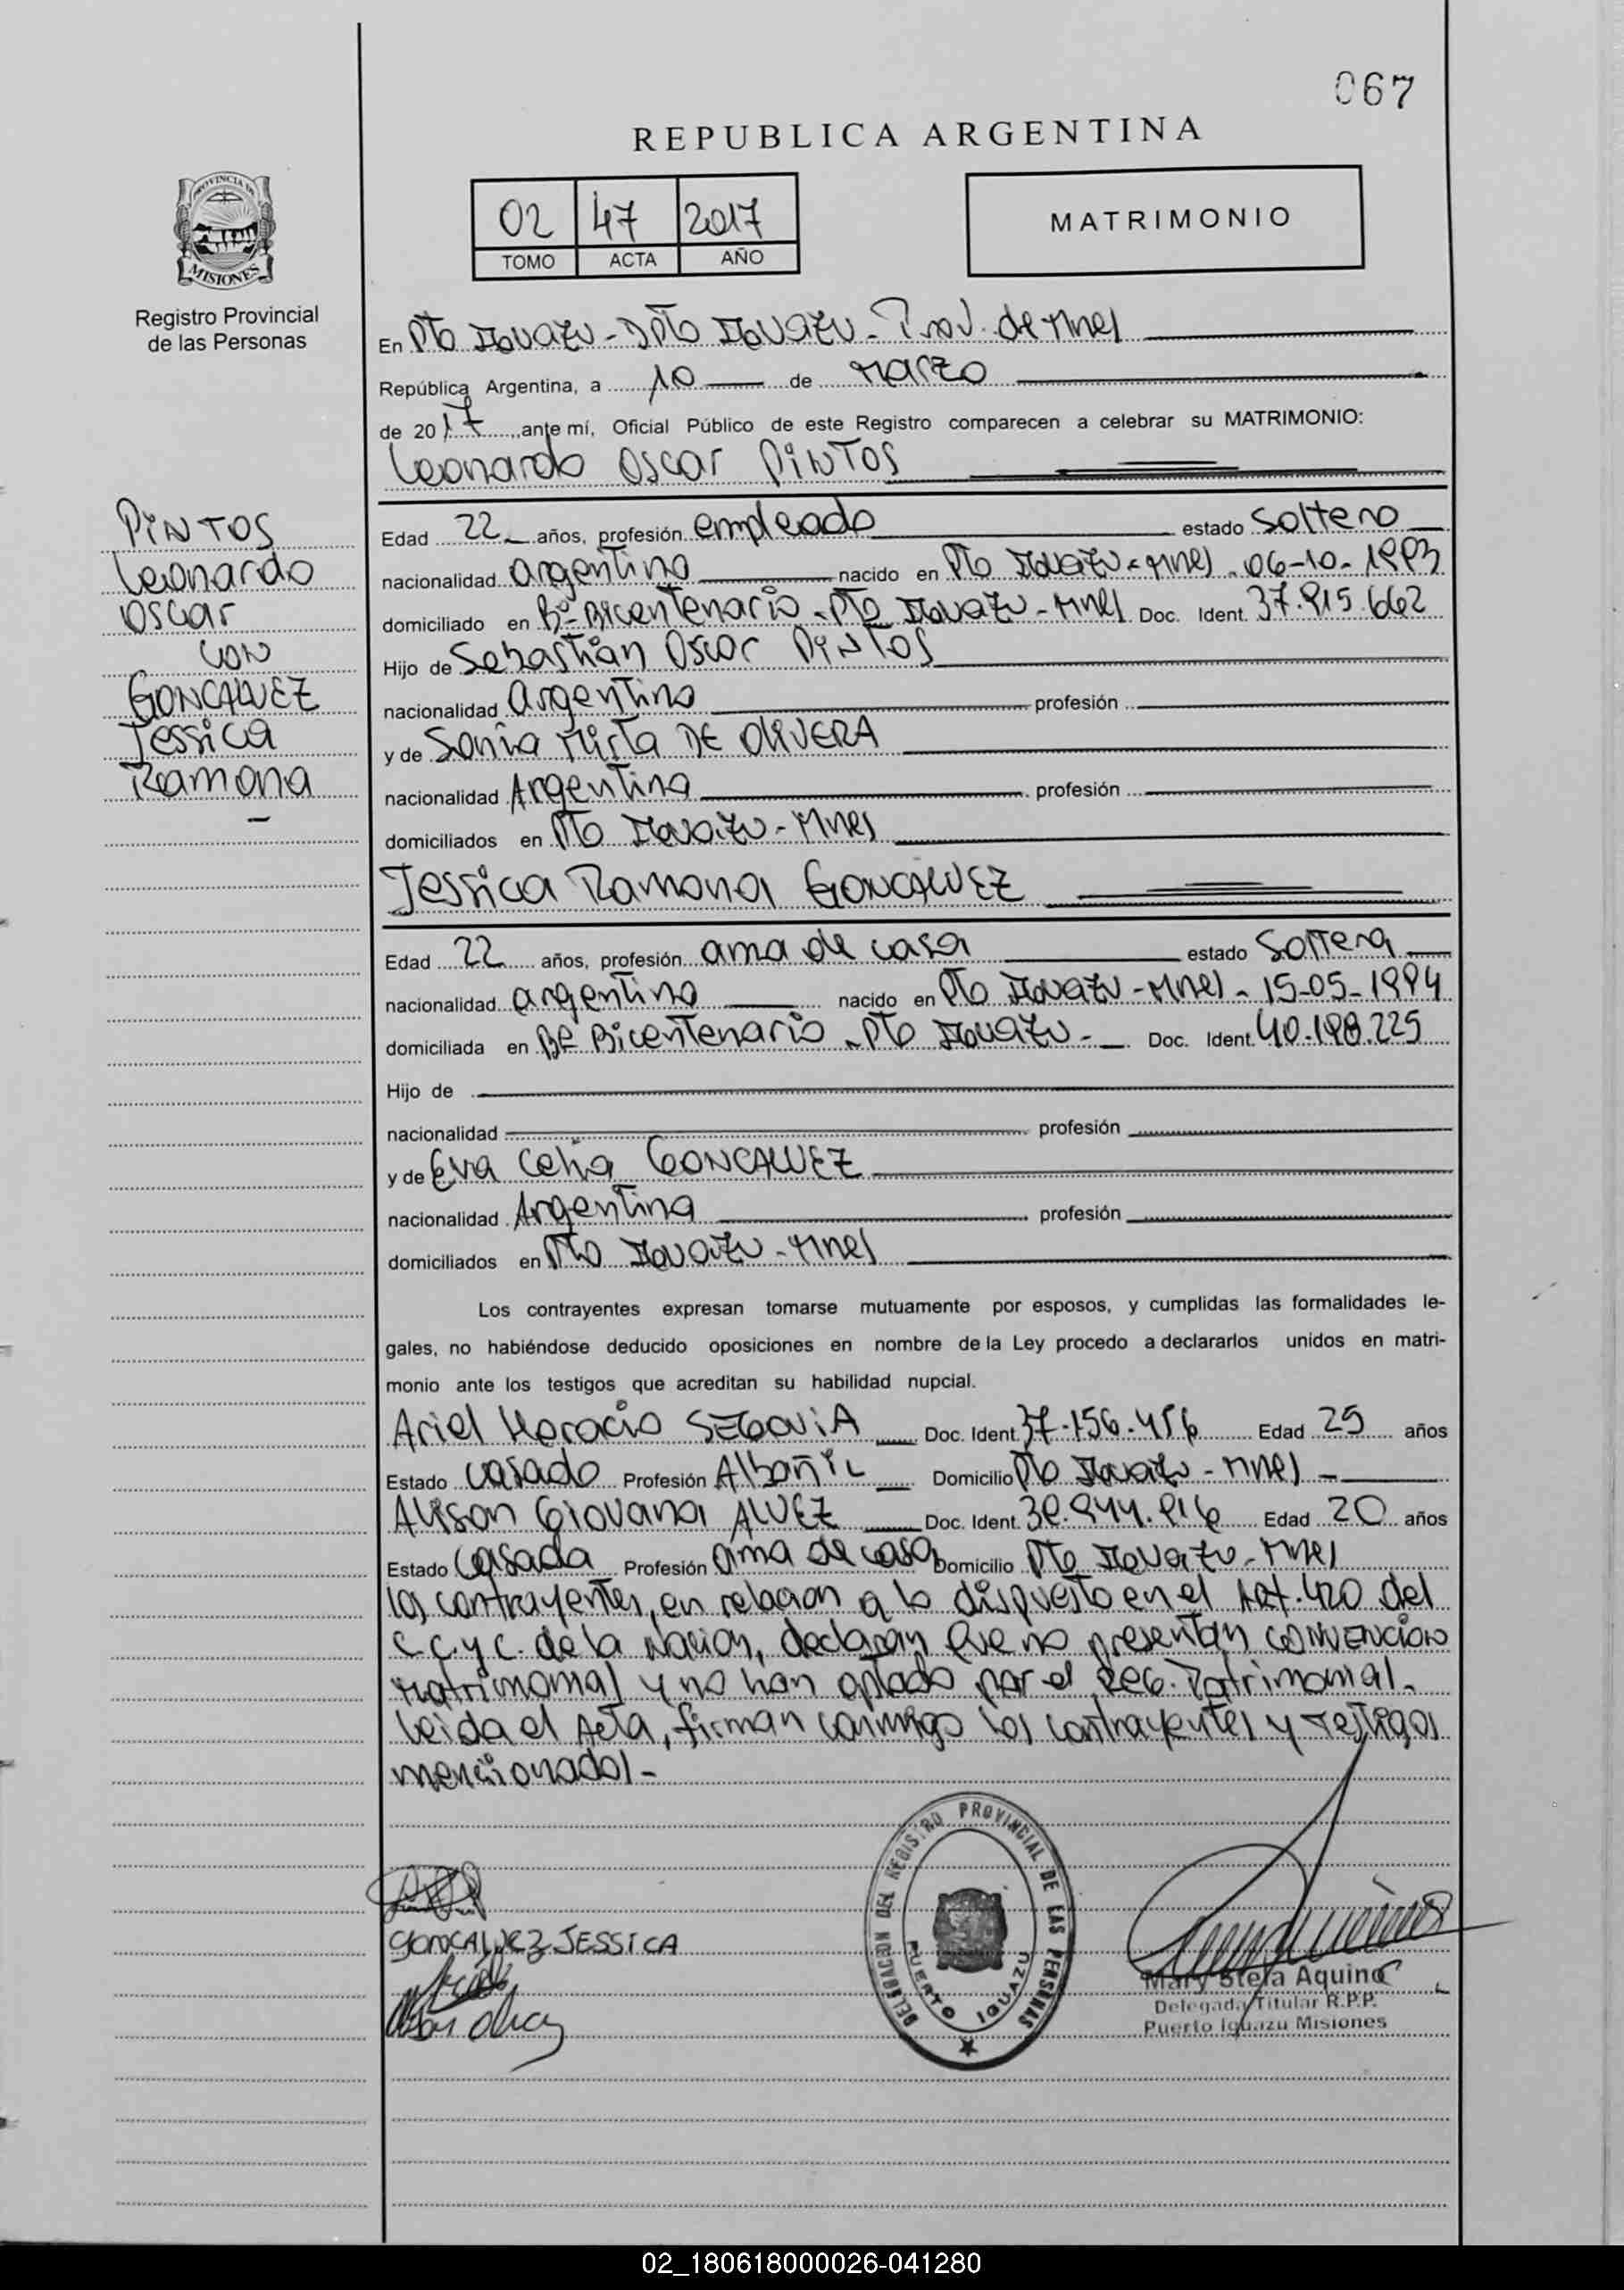 067
REPUBLICA ARGENTINA
02 47 2017
TOMO ACTA AÑO
MATRIMONIO
PROVINCIA DE
MISIONES
Registro Provincial
de las Personas
En Pto Iguazu - Dpto Iguazu - Prov. de Mnes
República Argentina, a 10 de Marzo
de 2017, ante mí, Oficial Público de este Registro comparecen a celebrar su MATRIMONIO:
Leonardo Oscar PINTOS
PINTOS
Leonardo
Oscar
CON
GONCALVEZ
Jessica
Ramona
Edad 22 años, profesión empleado estado Soltero
nacionalidad argentino nacido en Pto Iguazu - Mnes - 06-10-1993
domiciliado en Bº Bicentenario - Pto Iguazu - Mnes Doc. Ident. 37.915.662
Hijo de Sebastián Oscar PINTOS
nacionalidad Argentino profesión
y de Sonia Mirta DE OLIVERA
nacionalidad Argentina profesión
domiciliados en Pto Iguazu - Mnes
Jessica Ramona GONCALVEZ
Edad 22 años, profesión ama de casa estado Soltera
nacionalidad argentina nacido en Pto Iguazu - Mnes - 15-05-1994
domiciliada en Bº Bicentenario - Pto Iguazu - Doc. Ident. 40.198.225
Hijo de
nacionalidad profesión
y de Eva Celia GONCALVEZ
nacionalidad Argentina profesión
domiciliados en Pto Iguazu - Mnes
Los contrayentes expresan tomarse mutuamente por esposos, y cumplidas las formalidades le-
gales, no habiéndose deducido oposiciones en nombre de la Ley procedo a declararlos unidos en matri-
monio ante los testigos que acreditan su habilidad nupcial.
Ariel Horacio SEGOVIA Doc. Ident. 37.156.456 Edad 25 años
Estado casado Profesión Albañil Domicilio Pto Iguazu - Mnes -
Alison Giovana ALVEZ Doc. Ident. 39.944.916 Edad 20 años
Estado Casada Profesión ama de casa Domicilio Pto Iguazu - Mnes
Los contrayentes, en relacion a lo dispuesto en el Art. 420 del
C.C.y C. de la Nacion, declaran que no presentan CONVENCION
Matrimonial y no han optado por el Reg. Patrimonial.
Leida el Acta, firman conmigo los contrayentes y testigos
mencionados -
GONCALVEZ JESSICA
DELEGACION DEL REGISTRO PROVINCIAL DE LAS PERSONAS
PUERTO IGUAZU
Mary Stela Aquino
Delegada Titular R.P.P.
Puerto Iguazu Misiones
02_180618000026-041280